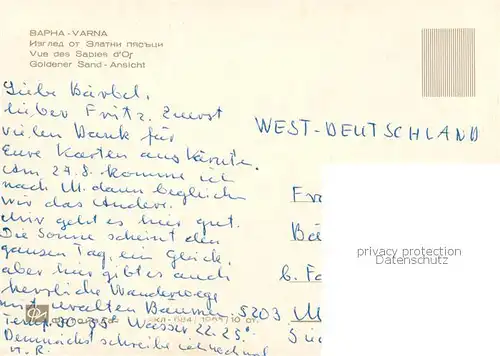 ВАРНА - VARNA
Изглед от Златни пясъци
Vue des Sables d'Or
Goldener Sand - Ansicht
Liebe Bärbel,
lieber Fritz, zuerst
vielen Dank für
Eure Karten aus Kärnten.
Am 27.8. komme ich
nach M. dann begleichen
wir das Andere.
Mir geht es hier gut.
Die Sonne scheint den
ganzen Tag, ein Glück,
aber hier gibt es auch
herrliche Wanderwege
mit uralten Bäumen
Temp. 30-35° Wasser 22-25°
Demnächst schreibe ich nochmal
WEST-DEUTSCHLAND
Fr
Bä
b. Fa
8203 M
privacy protection
Datenschutz